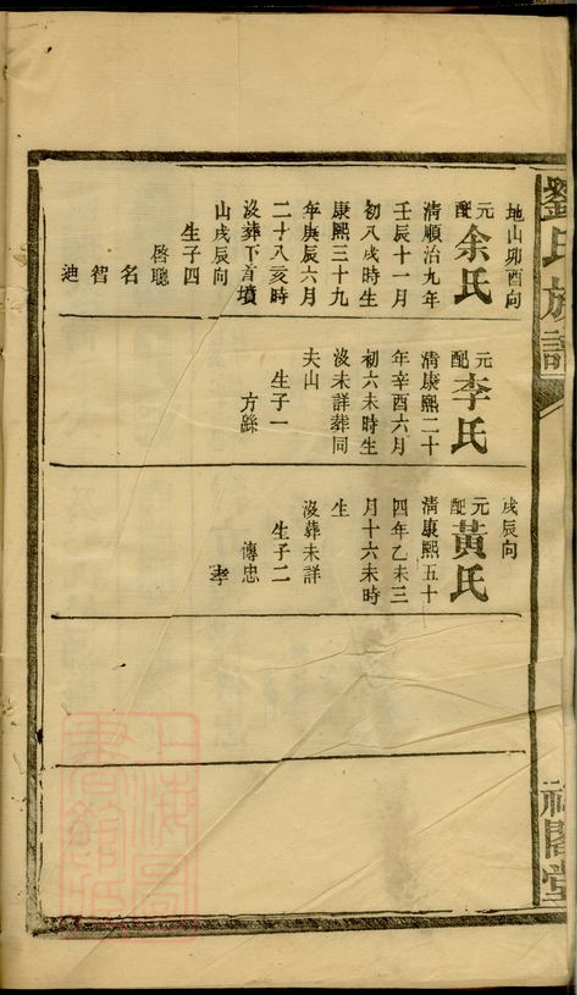 劉氏族譜
地山卯酉向
元配余氏
清順治九年
壬辰十一月
初八戌時生
康熙三十九
年庚辰六月
二十八亥時
沒葬下首墳
山戌辰向
生子四
啓聰
名
智
迪
元配李氏
清康熙二十
年辛酉六月
初六未時生
沒未詳葬同
夫山
生子一
方繇
戌辰向
元配黃氏
清康熙五十
四年乙未三
月十六未時
生
沒葬未詳
生子二
傳忠
孝
閣堂
上海圖書館